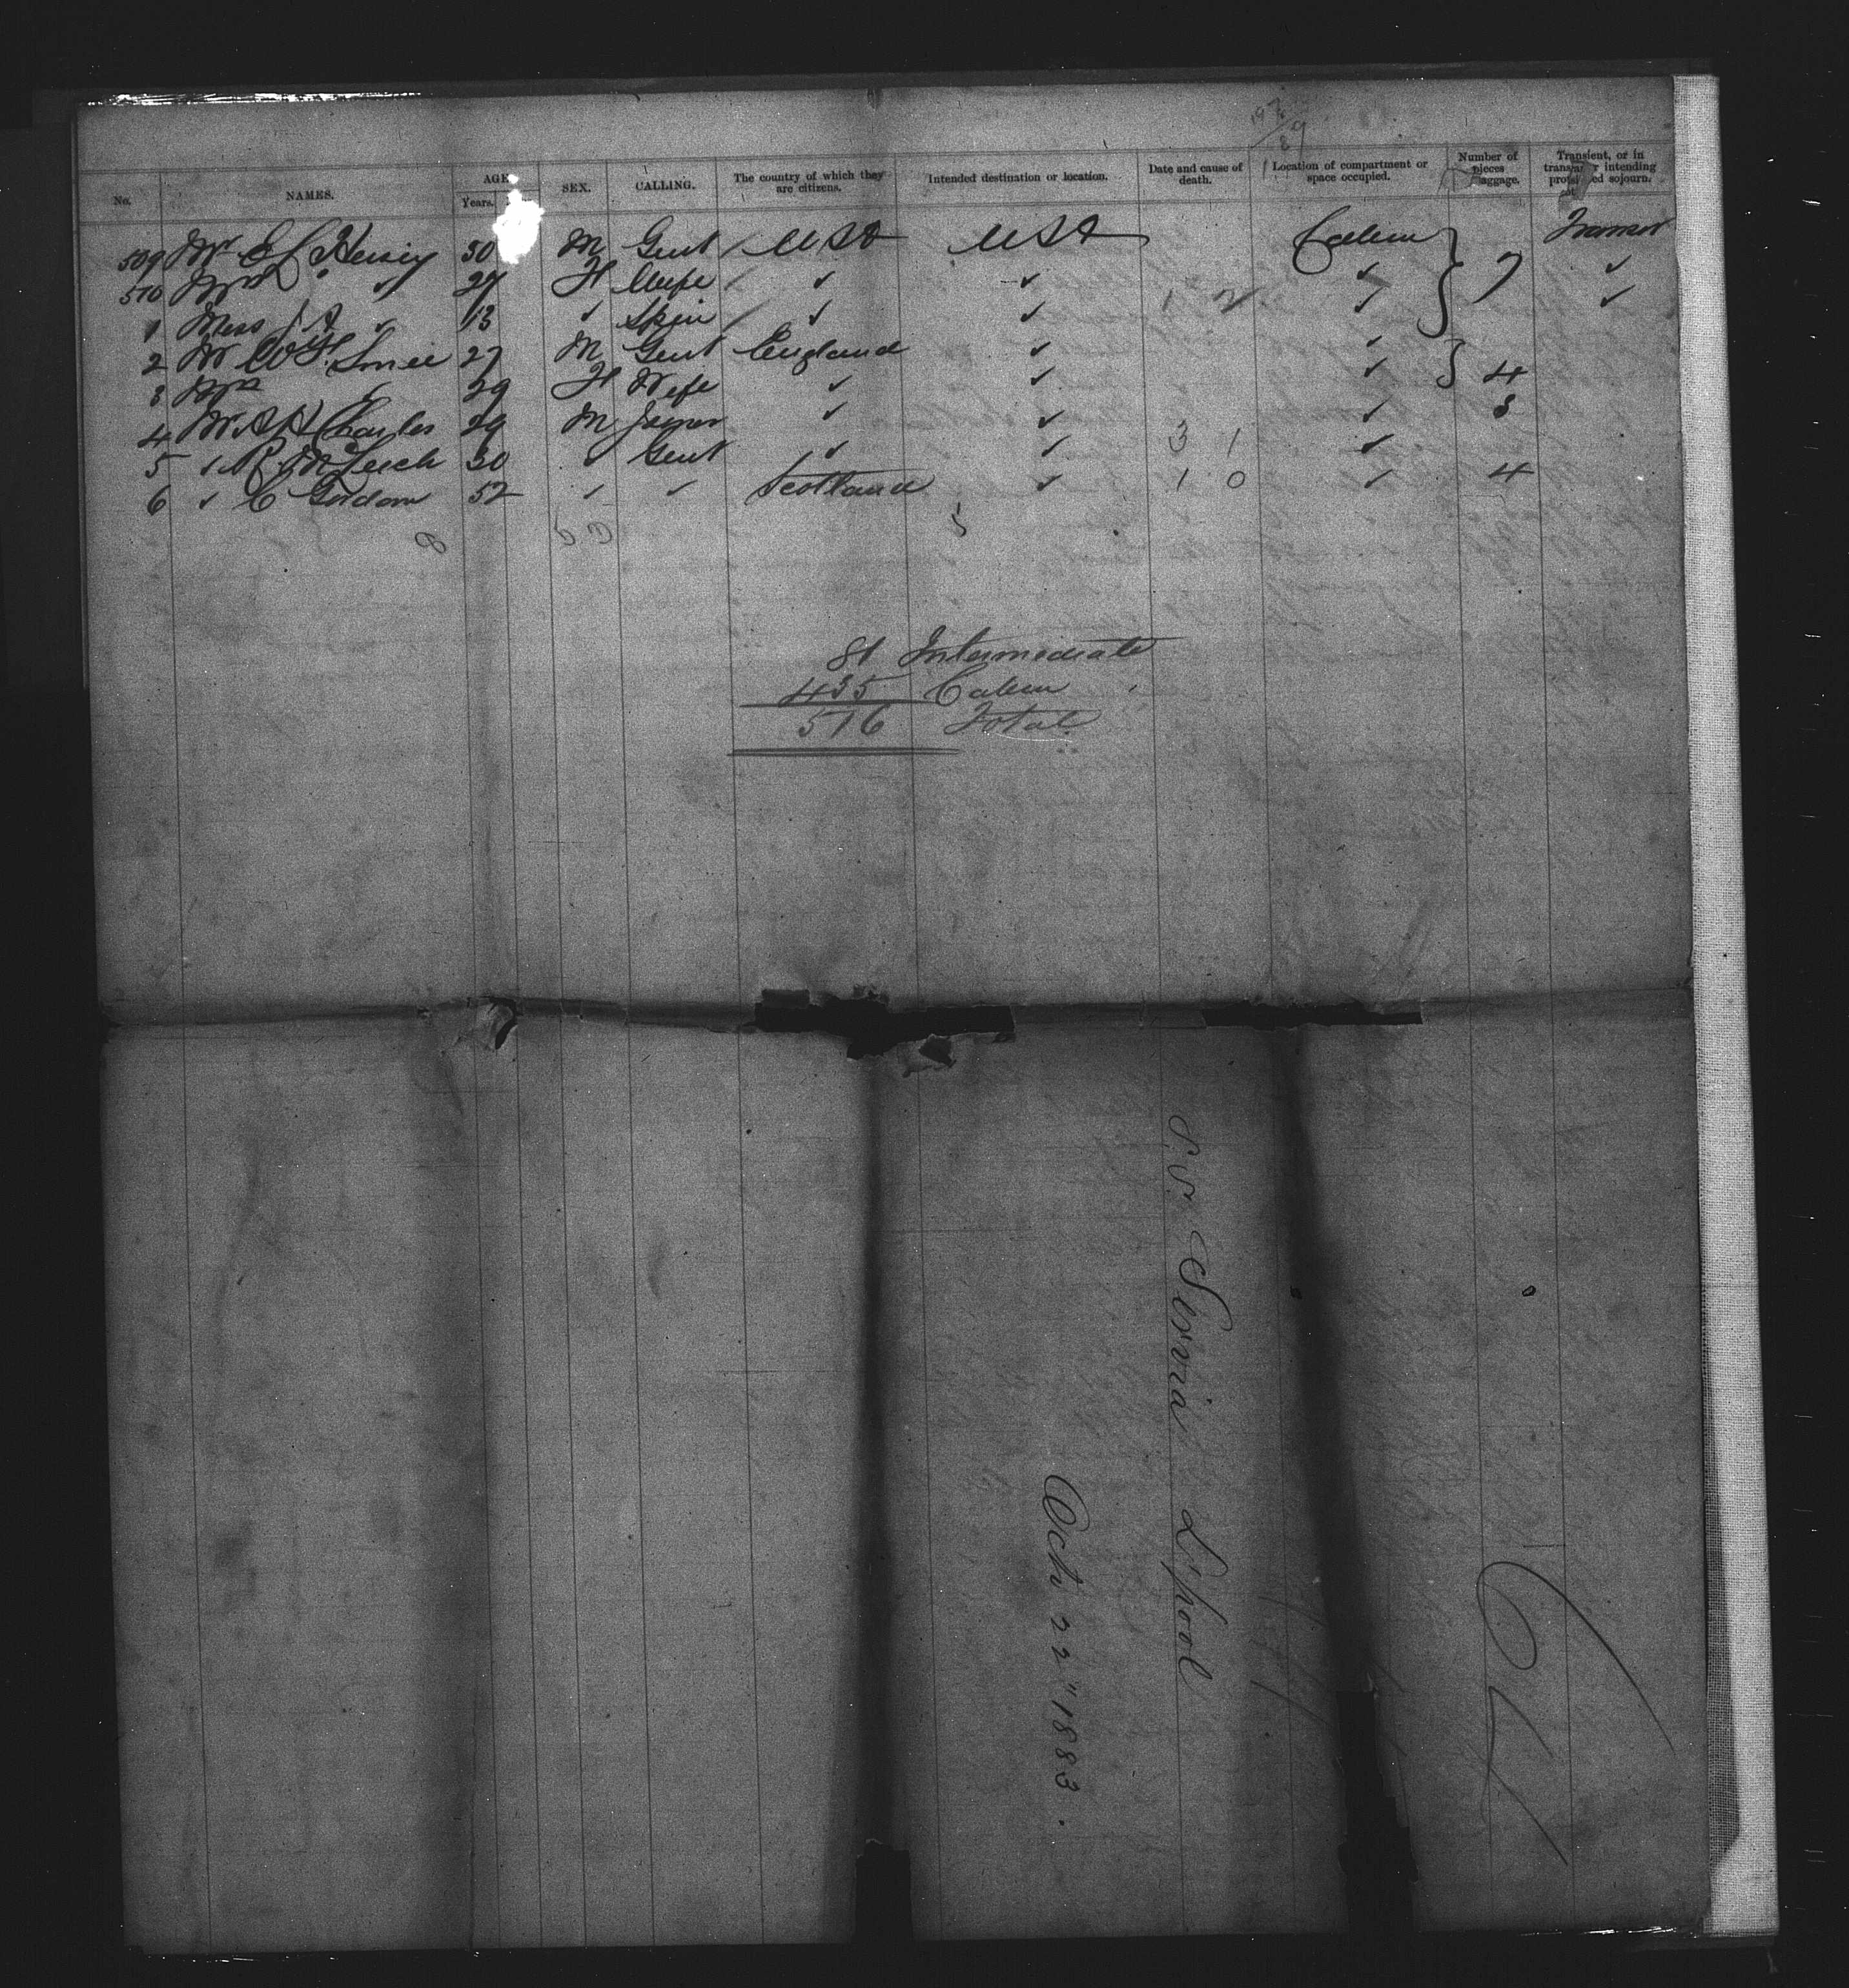 No. NAMES. AGE. Years. SEX. CALLING. The country of which they are citizens. Intended destination or location. Date and cause of death. Location of compartment or space occupied. Number of pieces baggage. Transient, or in intending ed sojourn.
509 Mr E C Hersey 30 M Gent USA USA
510 Mrs " ✓ 27 F Wife ✓ ✓ ✓ 7 ✓
1 Miss J A ✓ 13 ✓ Spin ✓ ✓ 1 2 ✓ ✓
2 Mr 27 M Gent England ✓ ✓
3 Mrs 29 F Wife ✓ ✓ ✓ 4
4 Mr A H Charles 29 M ✓ ✓ ✓ 3
5 ✓ R 30 ✓ Gent ✓ ✓ 3 1 ✓
6 ✓ C Gordon 52 ✓ ✓ Scotland ✓ 1 0 ✓ 4
8 5 3 5
81 Intermediate
435
516 Total
S.S. Servia L'pool
Oct 22" 1883.